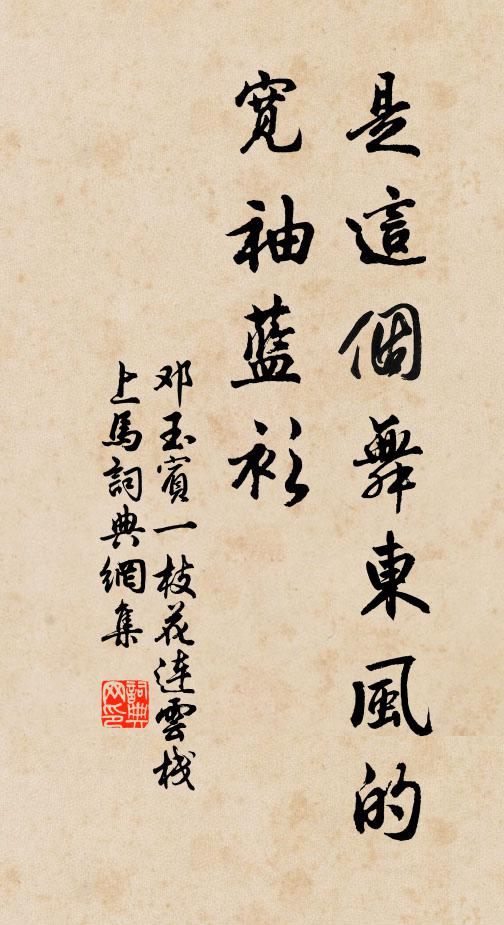 是這個舞東風的
寬袖藍衫
邓玉賓一枝花连雲棧
上馬詞典網集
詞典网印